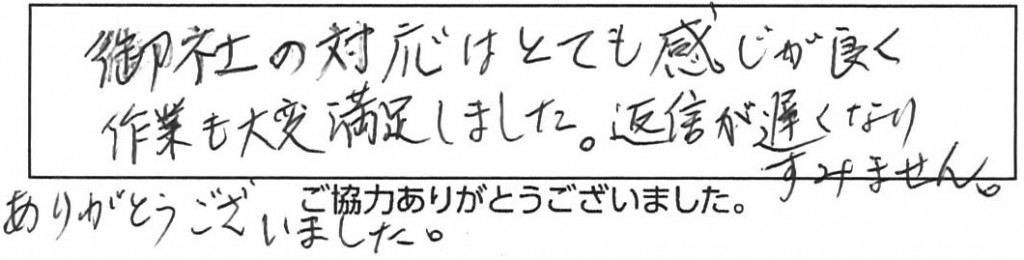 御社の対応はとても感じが良く
作業も大変満足しました。返信が遅くなり
すみません。
ご協力ありがとうございました。
ありがとうございました。